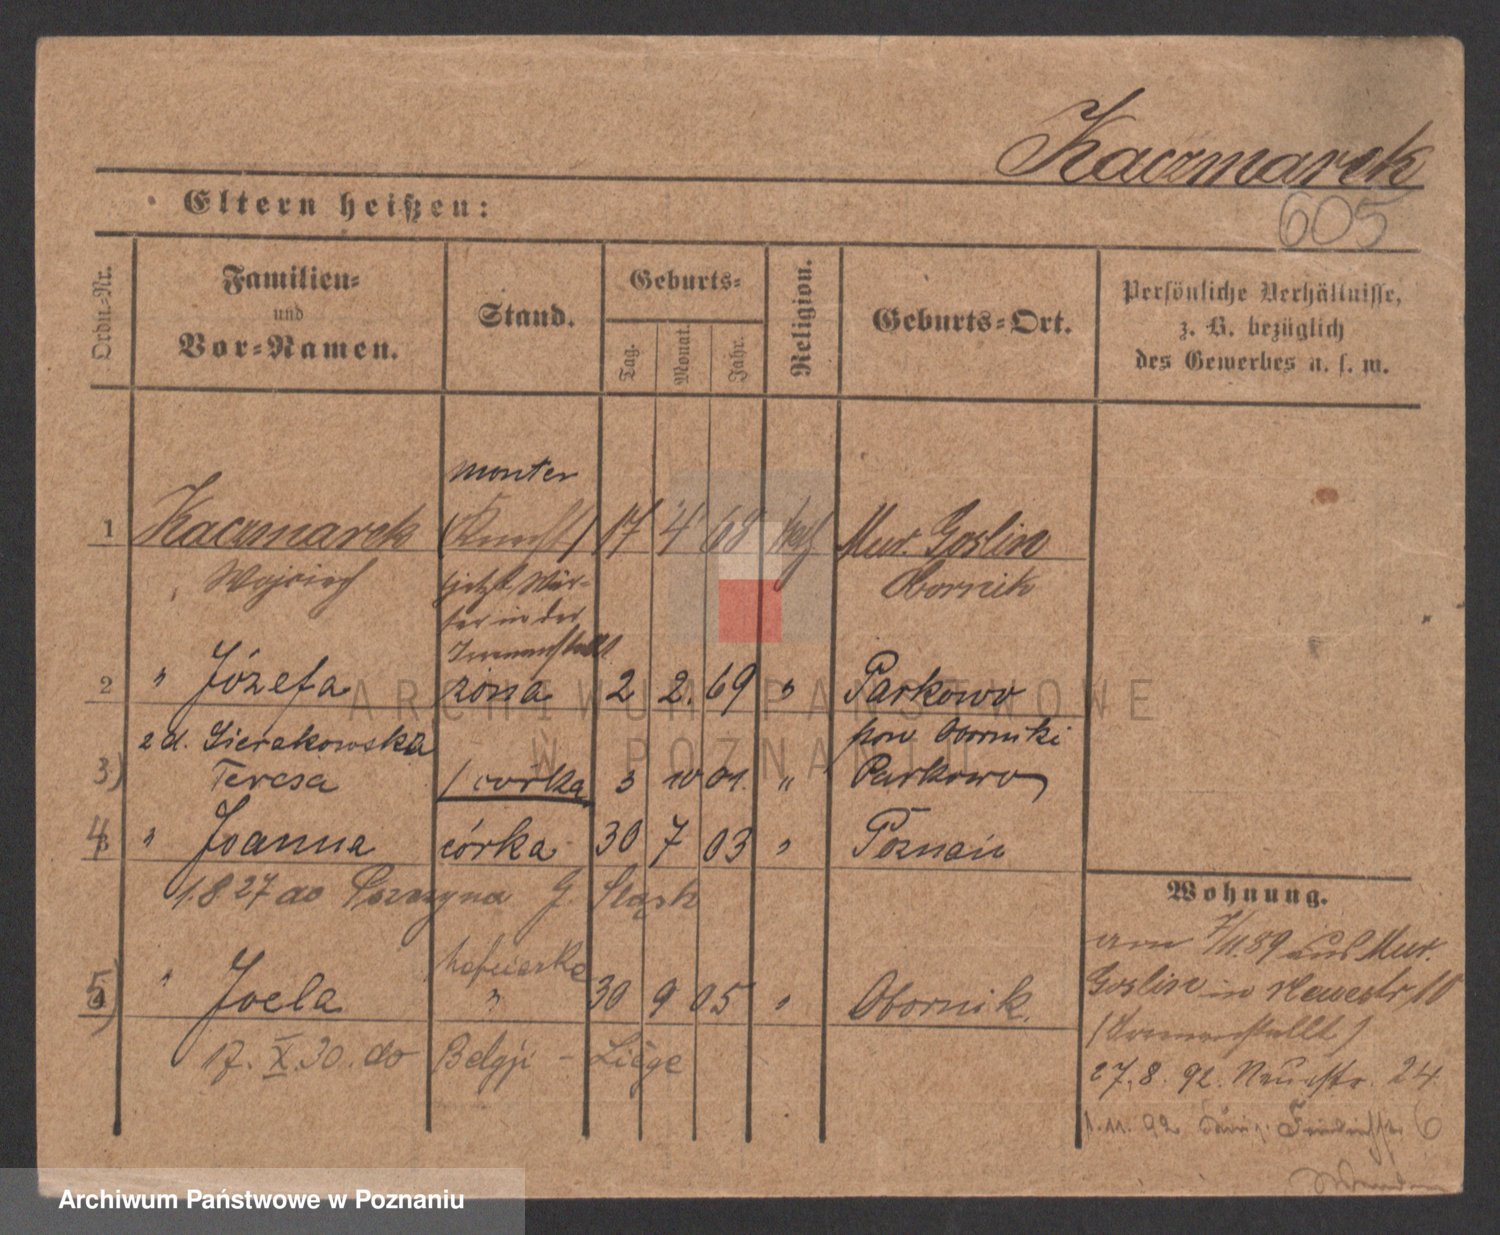 Kaczmarek
605
Eltern heißen:
Ordn.-Nr.
Familien-
und
Vor-Namen.
Stand.
Geburts-
Tag.
Monat.
Jahr.
Religion.
Geburts-Ort.
Persönliche Verhältnisse,
z. B. bezüglich
des Gewerbes u. s. w.
monter
1 Kaczmarek (Knecht) 17 4 68 kath Mur. Goslin
Wojciech jetzt Wär- Obornik
ter in der
Irrenanstalt
2 " Józefa żona 2 2. 69 " Parkowo
2 d. Sierakowska pow Oborniki
3) Teresa / córka 3 10 01. " Parkowo
4 3 " Joanna córka 30 7 03 " Poznań
1.8 27 do G Śląsk
5) 4 " Joela " 30 9 05 " Obornik.
17. X. 30. do Belgji - Liège
Wohnung.
am 7/11.89 aus Mur.
Goslin in Neuestr 10
(Irrenanstallt)
27.8. 92. 24
1.11. 92 6
ARCHIWUM PAŃSTWOWE
W POZNANIU
Archiwum Państwowe w Poznaniu